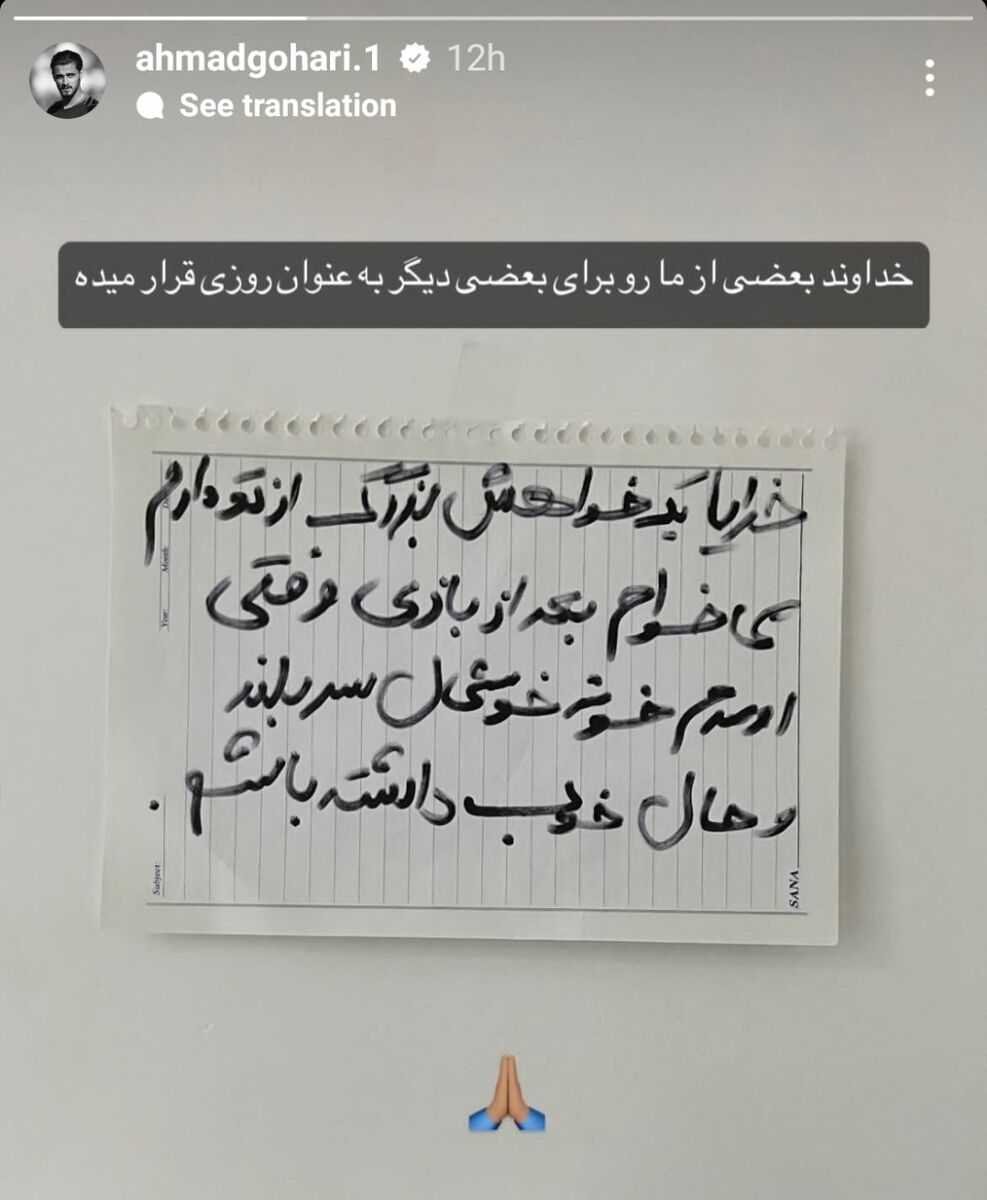 ahmadgohari.1 12h
See translation
خداوند بعضی از ما رو برای بعضی دیگر به عنوان روزی قرار میده
خدایا یک خواهش بزرگ از تو دارم
می خوام بعد از بازی وقتی
اومدم خونه خوشحال سربلند
و حال خوب داشته باشم.
Month:
Year:
Subject:
SANA